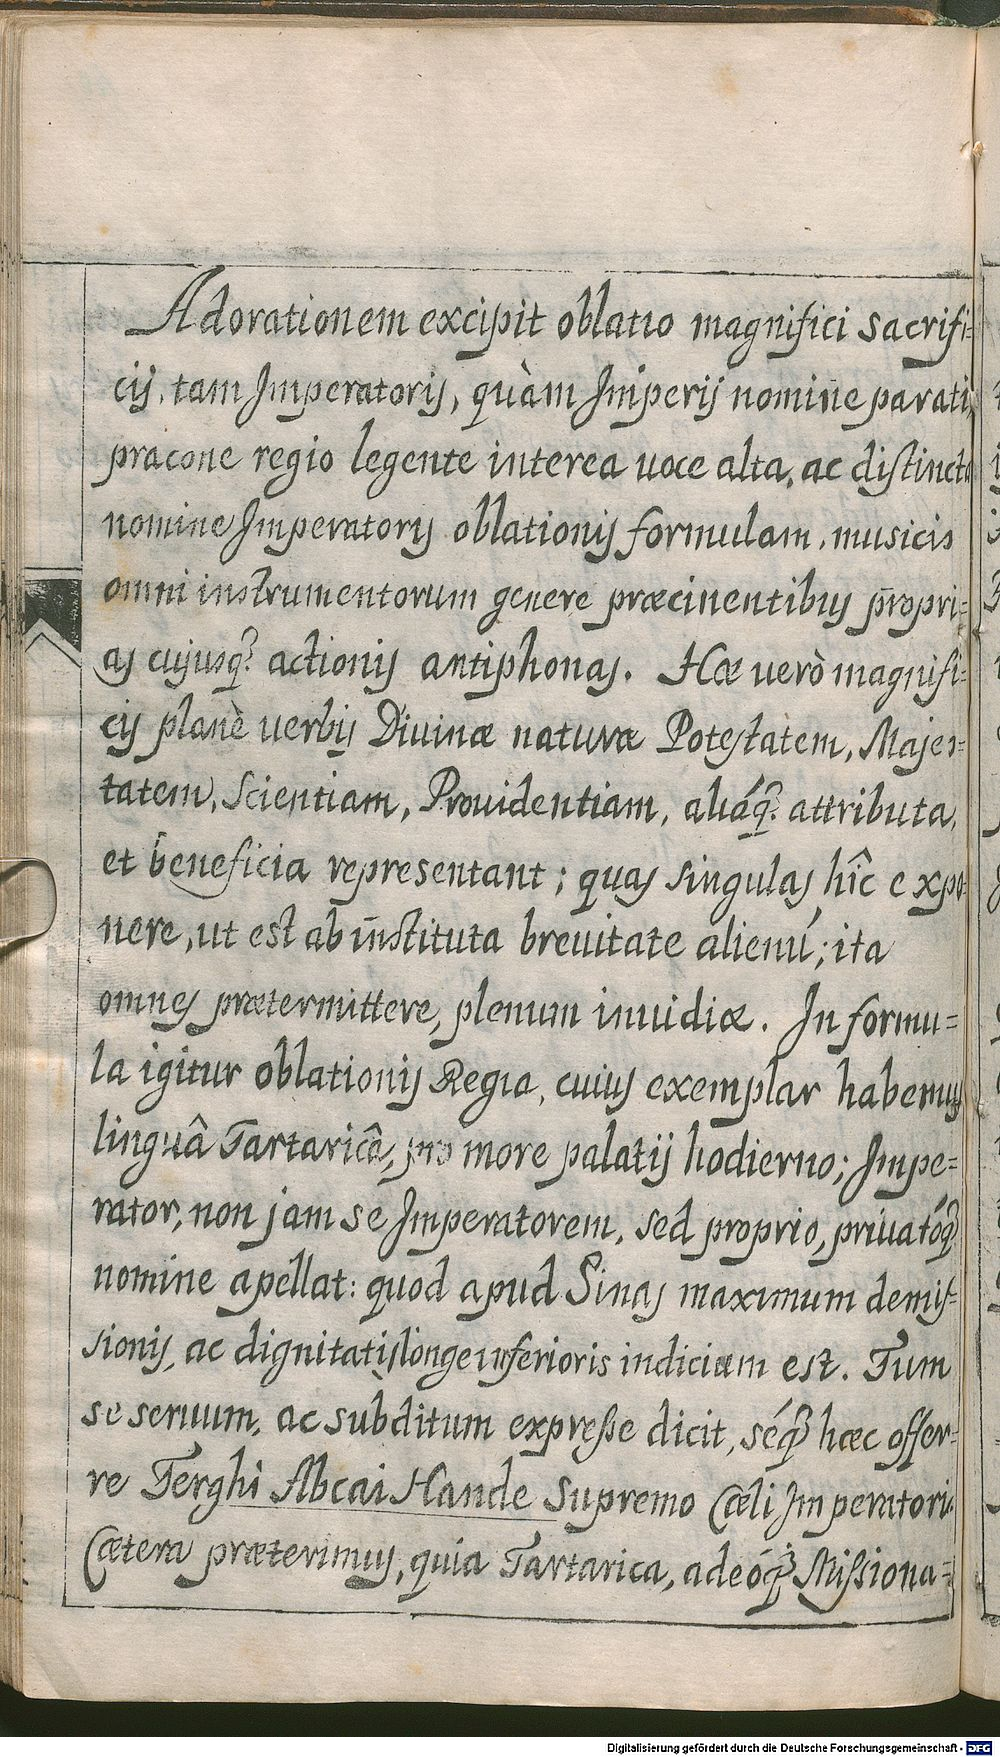 Adorationem excipit oblatio magnifici sacrifi=
cij, tam Imperatoris, quàm Imperij nomine parati,
præcone regio legente interea voce alta, ac distincta
nomine Imperatoris oblationis formulam, musicis
omni instrumentorum genere præcinentibus propri=
as cujusq; actionis antiphonas. Hæ verò magnifi=
cis planè verbis Divinæ naturæ Potestatem, Majes=
tatem, Scientiam, Providentiam, aliáq; attributa,
et beneficia representant; quas singulas hîc expo=
nere, ut est ab instituta brevitate alienú; ita
omnes prætermittere, plenum invidiæ. In formu=
la igitur oblationis Regia, cuius exemplar habemus
linguâ Tartaricâ, pro more palatij hodierno; Impe=
rator, non jam se Imperatorem, sed proprio, privatóq;
nomine apellat: quod apud Sinas maximum demis=
sionis, ac dignitatis longe inferioris indicium est. Tum
se servum, ac subditum expresse dicit, séq; hæc offer=
re Terghi Abcai Hande Supremo Cæli Imperatori.
Cætera præterimus, quia Tartarica, adeóq; Missiona=
Digitalisierung gefördert durch die Deutsche Forschungsgemeinschaft - DFG